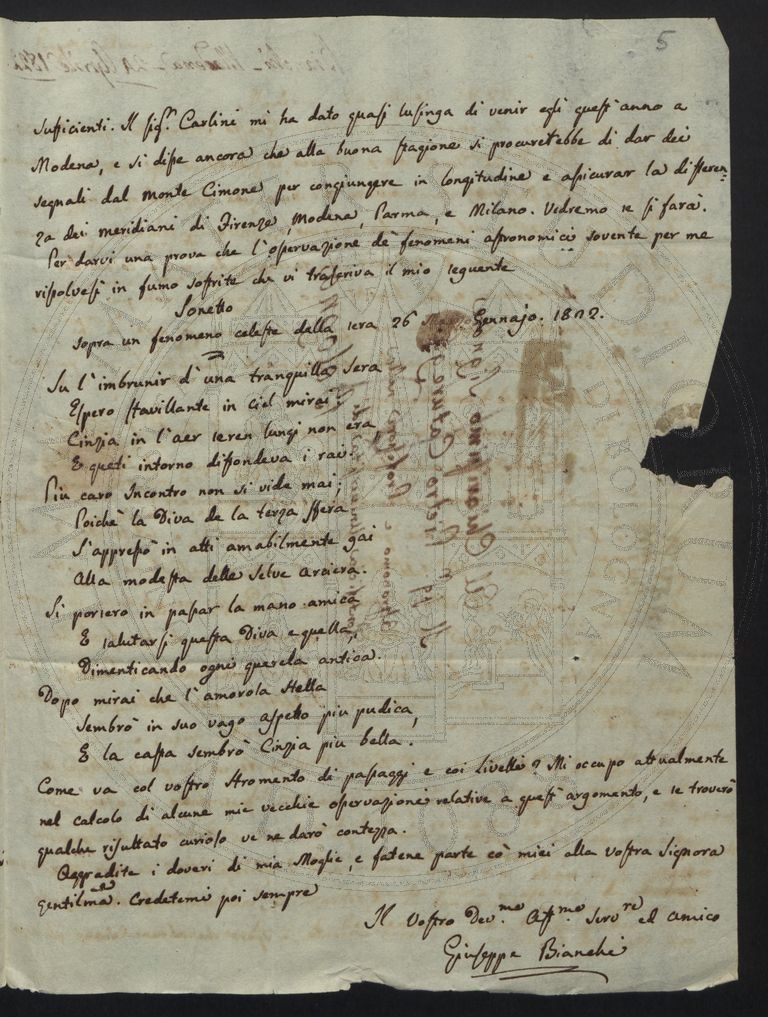 5
sufficienti. Il sig.r Carlini mi ha dato quasi lusinga di venir egli quest'anno a
Modena, e si disse ancora che alla buona stagione si procurerebbe di dar dei
segnali dal monte Cimone per congiungere in longitudine e assicurar la differen-
za dei meridiani di Firenze, Modena, Parma, e Milano. Vedremo se si farà.
Per darvi una prova che l'osservazione de' fenomeni astronomici sovente per me
risolvesi in fumo soffrite che vi trascriva il mio seguente
Sonetto
sopra un fenomeno celeste della sera 26 Gennajo. 1822.
Su l'imbrunir d'una tranquilla sera
Espero sfavillante in ciel mirai;
Cinzia in l'aer seren lungi non era
E queti intorno diffondeva i rai.
Più caro incontro non si vide mai;
Poichè la Diva de la terza sfera
S'appressò in atti amabilmente gai
Alla modesta delle Selve arciera.
Si porsero in passar la mano amica
E salutarsi questa Diva e quella,
Dimenticando ogni querela antica.
Dopo mirai che l'amorosa stella
Sembrò in suo vago aspetto più pudica,
E la casta sembrò Cinzia più bella.
Come va col vostro stromento di passaggi e coi livelli? Mi occupo attualmente
nel calcolo di alcune mie vecchie osservazioni relative a quest'argomento, e se troverò
qualche risultato curioso ve ne darò contezza.
Aggradite i doveri di mia Moglie, e fatene parte co' miei alla vostra Signora
gentilma. Credetemi poi sempre
Il vostro Dev.mo Aff.mo Serv.re ed amico
Giuseppe Bianchi